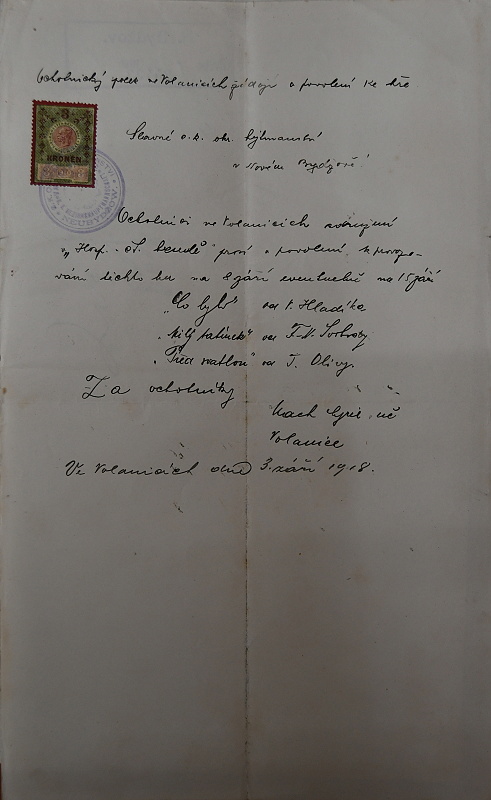 Ochotnický ve Volanicích žádají o povolení ke hře
3
KRONEN
Slavné c.k. okr. hejtmanství
v Novém Bydžově!
Ochotníci ve Volanicích
prosí o povolení k provozo-
vání těchto her na 8 září eventuelně na 15 září
"Co bylo" od V. Hladíka
"Milý tatínek" od F. Svobody
"Před svatbou" od J. Olivy.
Za ochotníky
Volanice
Ve Volanicích dne 3. září 1918.